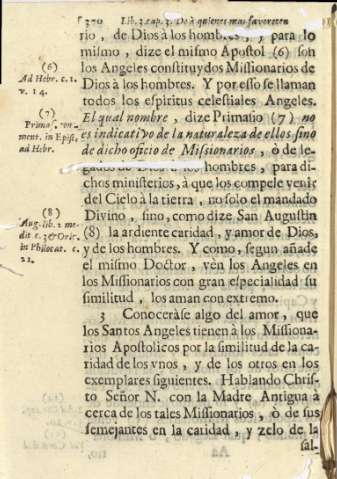 370 Lib. 3. cap. 3. De à quienes mas favorecen
rio, de Dios à los hombres, y para lo
mismo, dize el mismo Apostol (6) son
los Angeles constituydos Missionarios de
Dios à los hombres. Y por esso se llaman
todos los espiritus celestiales Angeles.
El qual nombre, dize Primasio (7) no
es indicativo de la naturaleza de ellos sino
de dicho oficio de Missionarios, ò de le-
gados de Dios à los hombres, para di-
chos ministerios, à que los compele venir
del Cielo à la tierra, no solo el mandado
Divino, sino, como dize San Augustin
(8) la ardiente caridad, y amor de Dios,
y de los hombres. Y como, segun añade
el mismo Doctor, vèn los Angeles en
los Missionarios con gran especialidad su
similitud, los aman con extremo.
3 Conoceràse algo del amor, que
los Santos Angeles tienen à los Missiona-
rios Apostolicos por la similitud de la ca-
ridad de los vnos, y de los otros en los
exemplares siguientes. Hablando Chris-
to Señor N. con la Madre Antigua à
cerca de los tales Missionarios, ò de sus
semejantes en la caridad, y zelo de la
sal-
(6)
Ad Hebr. c. 1.
v. 14.
(7)
Primas. com-
ment. in Epist.
ad Hebr.
(8)
Aug. lib. 2 me-
dit c. 3 & Orig.
in Philocat. c.
22.